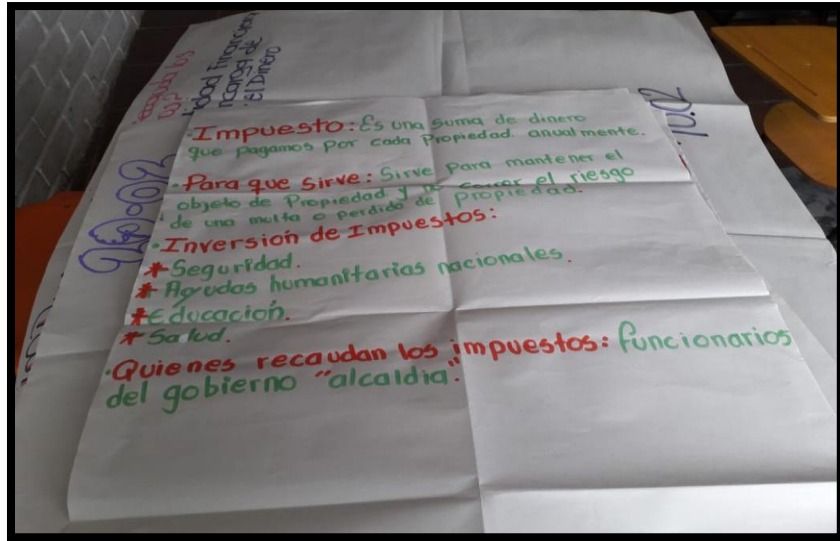 ·Impuesto: Es una suma de dinero
que pagamos por cada Propiedad. anualmente.
·Para que sirve: Sirve Para mantener el
objeto de Propiedad y no correr el riesgo
de una multa o perdida de propiedad.
·Inversión de Impuestos:
*Seguridad.
*Ayudas humanitarias nacionales.
*Educación.
*Salud.
·Quienes recaudan los impuestos: funcionarios
del gobierno "alcaldia".
el Dinero
10.02